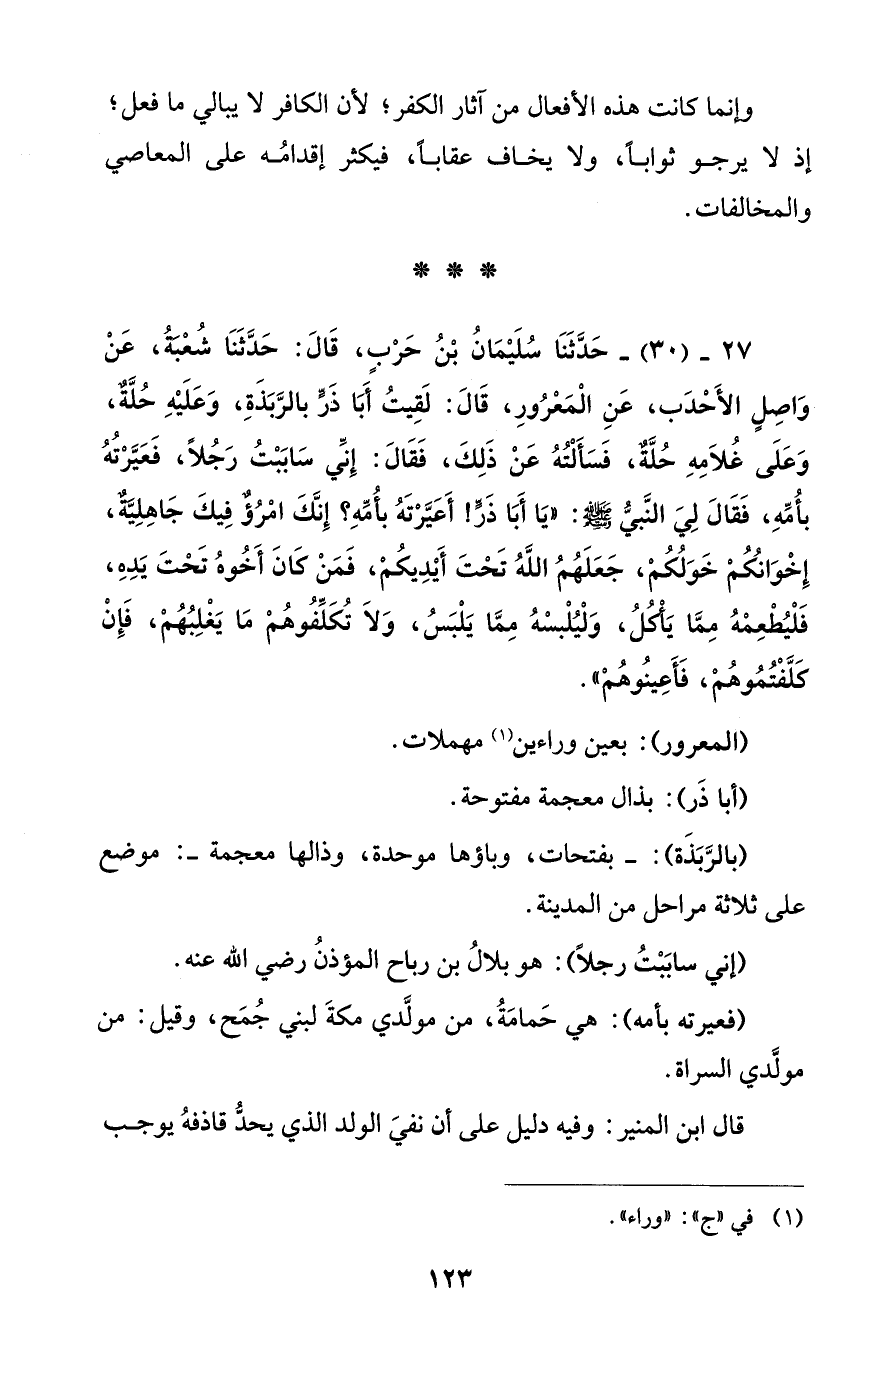 وإنما كانت هذه الأفعال من آثار الكفر؛ لأن الكافر لا يبالي ما فعل؛
إذ لا يرجو ثواباً، ولا يخاف عقاباً، فيكثر إقدامُه على المعاصي
والمخالفات.
* * *
٢٧ ـ (٣٠) ـ حَدَّثَنَا سُلَيْمَانُ بْنُ حَرْبٍ، قَالَ: حَدَّثَنَا شُعْبَةُ، عَنْ
وَاصِلٍ الأَحْدَب، عَنِ الْمَعْرُورِ، قَالَ: لَقِيتُ أَبَا ذَرٍّ بالرَّبَذَةِ، وَعَلَيْهِ حُلَّةٌ،
وَعَلَى غُلاَمِهِ حُلَّةٌ، فَسَأَلْتُهُ عَنْ ذَلِكَ، فَقَالَ: إِنِّي سَابَبْتُ رَجُلاً، فَعَيَّرْتُهُ
بأُمِّهِ، فَقَالَ لِيَ النَّبيُّ ﷺ: «يَا أَبَا ذَرٍّ! أَعَيَّرْتَهُ بأُمِّهِ؟ إِنَّكَ امْرُؤٌ فِيكَ جَاهِلِيَّةٌ،
إِخْوَانُكُمْ خَوَلُكُمْ، جَعَلَهُمُ اللَّهُ تَحْتَ أَيْدِيكُمْ، فَمَنْ كَانَ أَخُوهُ تَحْتَ يَدِهِ،
فَلْيُطْعِمْهُ مِمَّا يَأْكُلُ، وَلْيُلْبِسْهُ مِمَّا يَلْبَسُ، وَلاَ تُكَلِّفُوهُمْ مَا يَغْلِبُهُمْ، فَإِنْ
كَلَّفْتُمُوهُمْ، فَأَعِينُوهُمْ».
(المعرور): بعين وراءين(١) مهملات.
(أبا ذَر): بذال معجمة مفتوحة.
(بالرَّبَذَة): ـ بفتحات، وباؤها موحدة، وذالها معجمة ـ: موضع
على ثلاثة مراحل من المدينة.
(إني سابَبْتُ رجلاً): هو بلالُ بن رباح المؤذنُ رضي الله عنه.
(فعيرته بأمه): هي حَمامَةُ، من مولَّدي مكةَ لبني جُمَح، وقيل: من
مولَّدي السراة.
قال ابن المنير: وفيه دليل على أن نفيَ الولد الذي يحدُّ قاذفهُ يوجب
(١) في «ج»: «وراء».
١٢٣